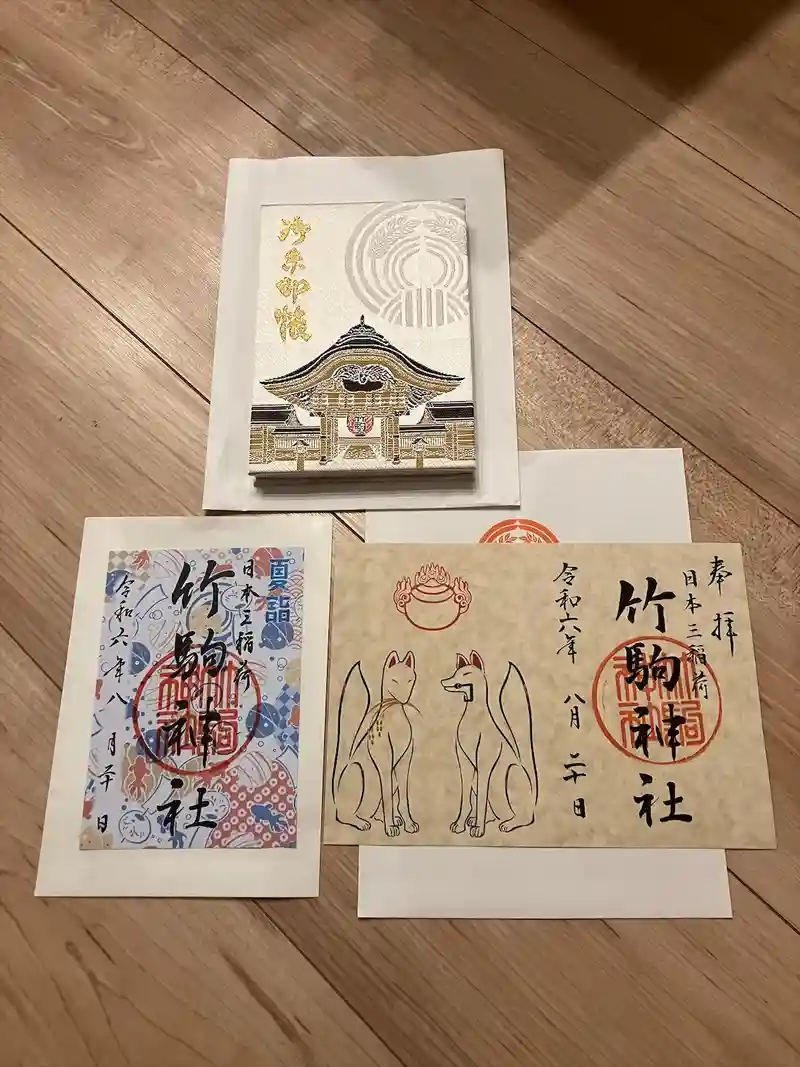 御朱印帳
竹駒
夏詣
日本三稲荷
竹駒神社
令和六年八月二十日
奉拝
日本三稲荷
竹駒神社
令和六年 八月 二十日